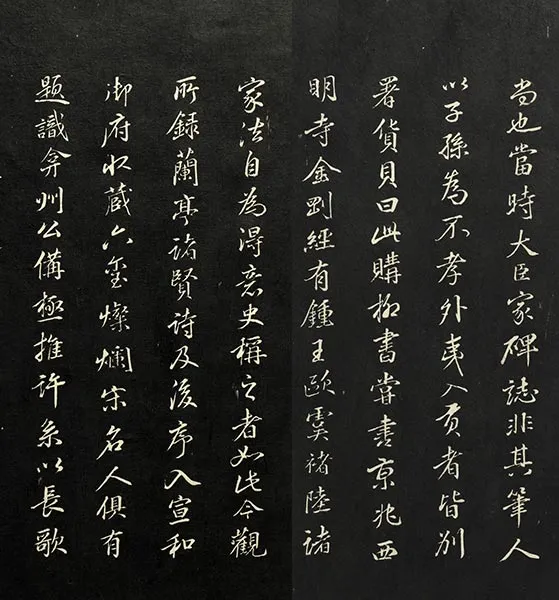 尚也當時大臣家碑誌非其筆人
以子孫為不孝外夷入貢者皆別
署貨貝曰此購柳書嘗書京兆西
明寺金剛經有鍾王歐虞褚陸諸
家法自為得意史稱之者如此今觀
所錄蘭亭諸賢詩及後序入宣和
御府收藏六璽燦爛宋名人俱有
題識弇州公備極推許系以長歌